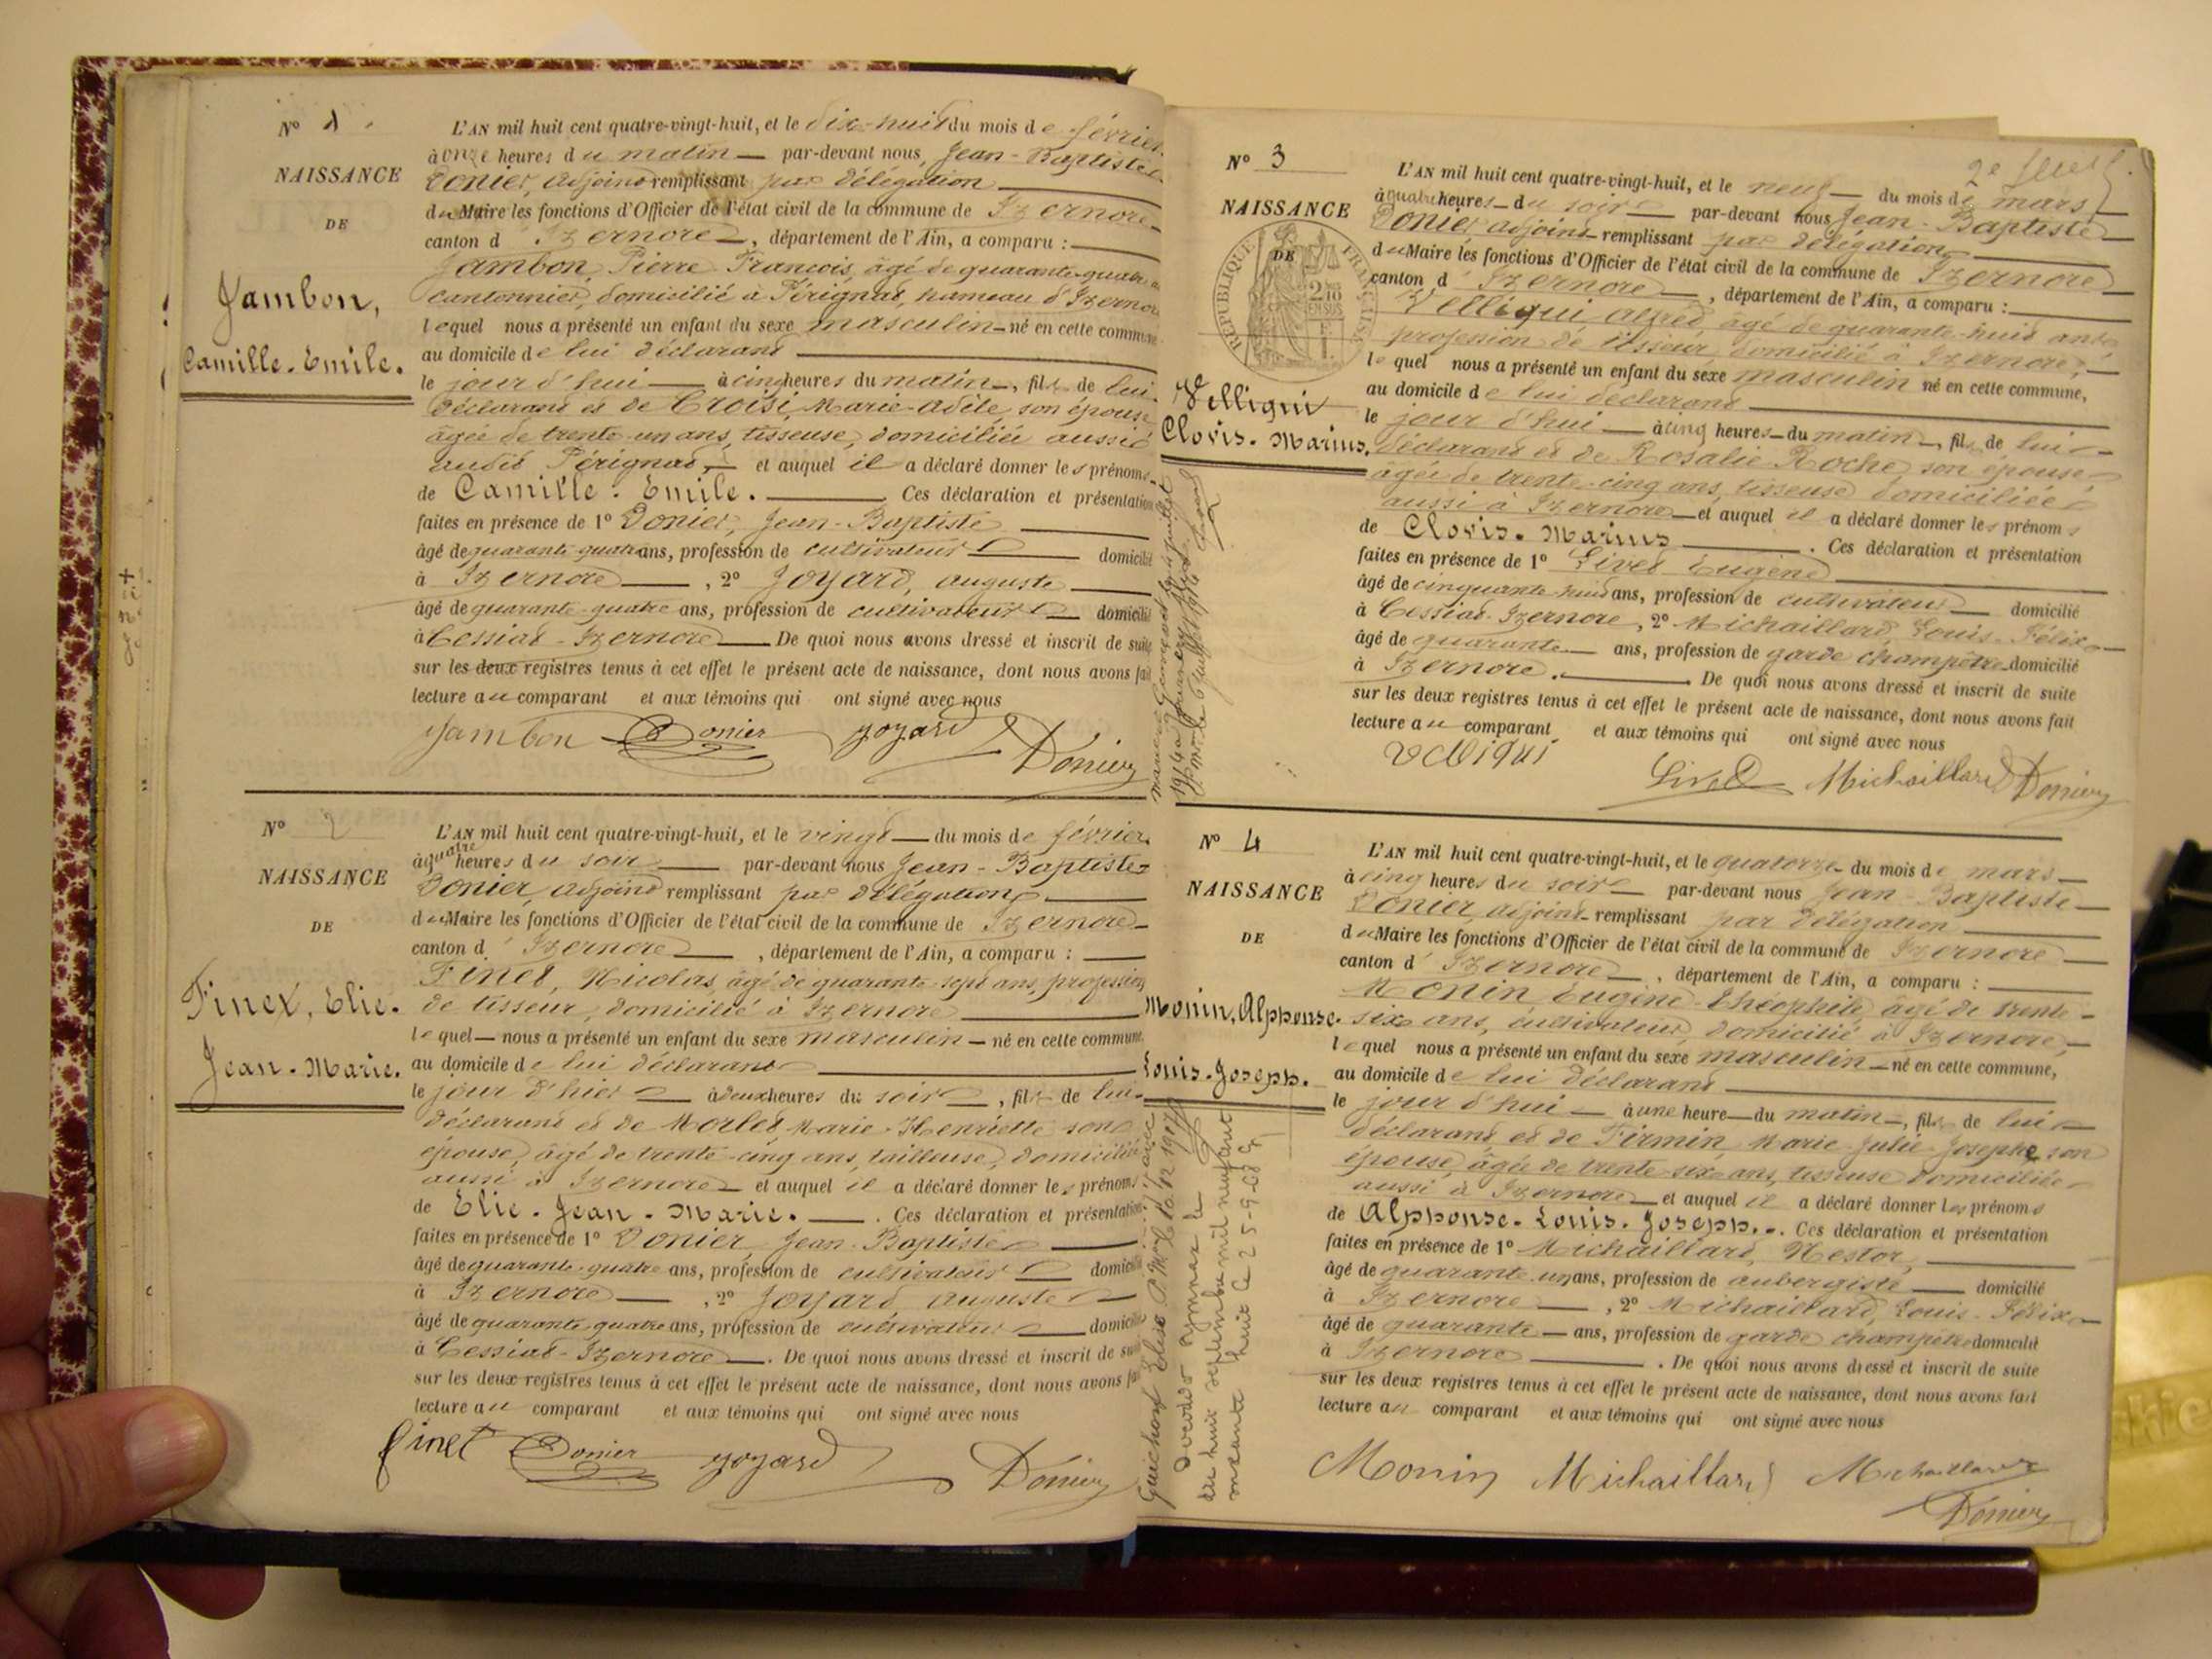 Nº 1.
NAISSANCE
DE
Jambon,
Camille-Emile.
L'AN mil huit cent quatre-vingt-huit, et le dix-huit du mois de février
à onze heures du matin — par-devant nous, Jean-Baptiste
Donier, adjoint remplissant par délégation
du Maire les fonctions d'Officier de l'état civil de la commune de Izernore
canton d'Izernore, département de l'Ain, a comparu :
Jambon, Pierre François, âgé de quarante-quatre
cantonnier, domicilié à Pérignat, hameau d'Izernore
lequel nous a présenté un enfant du sexe masculin né en cette commune
au domicile de lui déclarant
le jour d'hui à cinq heures du matin, fils de lui
déclarant et de Croisi, Marie-Adèle, son épouse
âgée de trente-un ans, tisseuse, domiciliée aussi
audit Pérignat, et auquel il a déclaré donner les prénoms
de Camille-Emile. Ces déclaration et présentation
faites en présence de 1º Donier, Jean-Baptiste
âgé de quarante-quatre ans, profession de cultivateur domicilié
à Izernore, 2º Joyard, Auguste
âgé de quarante-quatre ans, profession de cultivateur domicilié
à Cessiat-Izernore De quoi nous avons dressé et inscrit de suite
sur les deux registres tenus à cet effet le présent acte de naissance, dont nous avons fait
lecture au comparant et aux témoins qui ont signé avec nous
Jambon Donier Joyard Donier
Nº 2
NAISSANCE
DE
Finet, Elie.
Jean-Marie.
L'AN mil huit cent quatre-vingt-huit, et le vingt du mois de février
à quatre heures du soir par-devant nous Jean-Baptiste
Donier, adjoint remplissant par délégation
du Maire les fonctions d'Officier de l'état civil de la commune de Izernore
canton d'Izernore, département de l'Ain, a comparu :
Finet, Nicolas, âgé de quarante-sept ans, profession
de tisseur, domicilié à Izernore
lequel nous a présenté un enfant du sexe masculin né en cette commune,
au domicile de lui déclarant
le jour d'hier à deux heures du soir, fils de lui
déclarant et de Morlet, Marie-Henriette son
épouse, âgé de trente-cinq ans, tailleuse, domiciliée
aussi à Izernore et auquel il a déclaré donner les prénoms
de Elie-Jean-Marie. Ces déclaration et présentation
faites en présence de 1º Donier, Jean-Baptiste
âgé de quarante-quatre ans, profession de cultivateur domicilié
à Izernore, 2º Joyard Auguste
âgé de quarante-quatre ans, profession de cultivateur domicilié
à Cessiat-Izernore. De quoi nous avons dressé et inscrit de suite
sur les deux registres tenus à cet effet le présent acte de naissance, dont nous avons fait
lecture au comparant et aux témoins qui ont signé avec nous
Finet Donier Joyard Donier
2e feuill.
Nº 3
NAISSANCE
DE
RÉPUBLIQUE FRANÇAISE
Velliqui
Clovis-Marius.
L'AN mil huit cent quatre-vingt-huit, et le neuf du mois de mars
à quatre heures du soir par-devant nous Jean-Baptiste
Donier, adjoint remplissant par délégation
du Maire les fonctions d'Officier de l'état civil de la commune de Izernore
canton d'Izernore, département de l'Ain, a comparu :
Velliqui Alfred, âgé de quarante-huit ans
profession de tisseur, domicilié à Izernore,
lequel nous a présenté un enfant du sexe masculin né en cette commune,
au domicile de lui déclarant
le jour d'hui à cinq heures du matin, fils de lui
déclarant et de Rosalie Roche, son épouse
âgée de trente-cinq ans, tisseuse domiciliée
aussi à Izernore et auquel il a déclaré donner les prénoms
de Clovis-Marius. Ces déclaration et présentation
faites en présence de 1º Livet Eugène
âgé de cinquante-huit ans, profession de cultivateur domicilié
à Cessiat-Izernore, 2º Michaillard, Louis-Félix
âgé de quarante ans, profession de garde champêtre domicilié
à Izernore. De quoi nous avons dressé et inscrit de suite
sur les deux registres tenus à cet effet le présent acte de naissance, dont nous avons fait
lecture au comparant et aux témoins qui ont signé avec nous
Velliqui
Livet Michaillard Donier
Nº 4
NAISSANCE
DE
Monin, Alphonse.
Louis-Joseph.
L'AN mil huit cent quatre-vingt-huit, et le quatorze du mois de mars
à cinq heures du soir par-devant nous Jean-Baptiste
Donier, adjoint remplissant par délégation
du Maire les fonctions d'Officier de l'état civil de la commune de Izernore
canton d'Izernore, département de l'Ain, a comparu :
Monin Eugène-Théophile, âgé de trente-
six ans, cultivateur, domicilié à Izernore,
lequel nous a présenté un enfant du sexe masculin né en cette commune,
au domicile de lui déclarant
le jour d'hui à une heure du matin, fils de lui
déclarant et de Firmin, Marie-Julie-Josephe son
épouse, âgée de trente-six ans, tisseuse domiciliée
aussi à Izernore et auquel il a déclaré donner les prénoms
de Alphonse-Louis-Joseph. Ces déclaration et présentation
faites en présence de 1º Michaillard, Nestor,
âgé de quarante-un ans, profession de aubergiste domicilié
à Izernore, 2º Michaillard, Louis-Félix
âgé de quarante ans, profession de garde champêtre domicilié
à Izernore. De quoi nous avons dressé et inscrit de suite
sur les deux registres tenus à cet effet le présent acte de naissance, dont nous avons fait
lecture au comparant et aux témoins qui ont signé avec nous
Monin Michaillard Michaillard
Donier